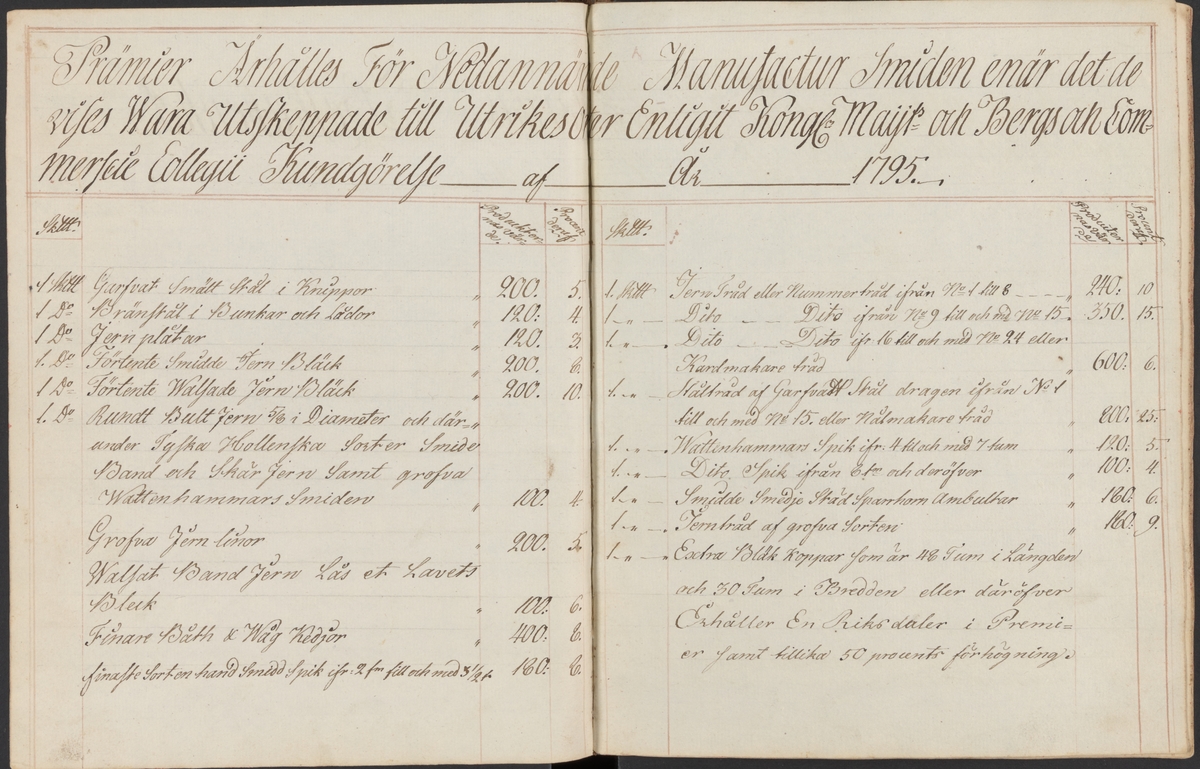 Prämier Ärhålles För Nedannämde Manufactur Smiden enär det de
vises Wara Utskeppade till Utrikes Orter Enligit Kongl: Maij:ts och Bergs och Com-
merseie Collegii Kundgörelse af År 1795.
Sk℔tt:
Produckten med viler de:
Procen derpå
1 Sk℔tt Garfvat Smält Stål i Knippor 200: 5.
1 Do Bränstål i Bunkar och lådor 120: 4
1 Do Jern plåtar 120. 3
1. Do Förtente Smidde Jern Bläck 200. 8.
1 Do Förtente Walsade Jern Bläck 200. 10.
1. Do Rundt Bult Jern 5/8 i Diameter och där-
under Tyska Hollenska Sorter Smide
Band och Skär Jern Samt grofva
Wattenhammars Smiden 100: 4.
Grofva Jern linor 200: 5.
Walsat Band Jern Lås et Lavets
Bleck 100: 6.
Finare Båth & Wåg Kedjor 400: 8.
finaste Sorten hand Smidd Spik ifr: 2 tm till och med 3 1/2 t 160: 8.
Sk℔tt:
Producter med viler de
Procent derpå
1. Sk℔tt Jern Tråd eller Nummertråd ifrån No 1 till 8 240: 10
1. „ Dito Dito ifrån No 9 till och med No 15. 350. 15.
1. „ Dito Dito ifr 16 till och med No 24 eller
Kardmakare tråd 600: 6.
1. „ Ståltråd af Garfvadt Stål dragen ifrån No 1
till och med No 15. eller Nålmakare tråd 800: 25.
1. „ Wattenhammars Spik ifr: 4 til och med 7 tum 120: 5.
1. „ Dito Spik ifrån 8 tm och deröfver 100: 4.
1. „ Smidde Smedje Städ Sparrhorn Ambultar 160: 6.
1. „ Jerntråd af grofva Sorten 160. 9.
1. „ Extra Bläk Koppar som är 48 Tum i Längden
och 30 Tum i Bredden eller däröfver
Erhåller En Riksdaler i Premi-
er samt tillika 50 procents förhögning.